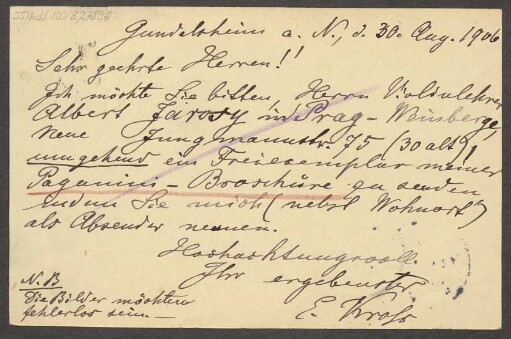 Gundelsheim a. N., d. 30. Aug. 1906
Sehr geehrte Herren!!
Ich möchte Sie bitten, Herrn Violinlehrer
Albert Jarosy in Prag - Weinberge,
Neue Jungmannstr. 75 (30 alt)!
umgehend ein Freiexemplar meiner
Paganini - Broschüre zu senden
indem Sie mich (nebst Wohnort)
als Absender nennen.
Hochachtungsvoll
Ihr ergebenster
E. Kross
N.B.
Die Bilder möchten
fehlerlos sein.—